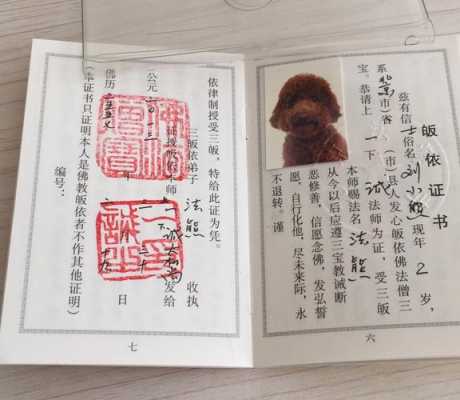 皈依证书
兹有信士俗名刘小
现年2岁,
系
市(省)
(市)县人发心皈依佛法僧三
宝。恭请上一下诚法师为证,受三皈
本师赐法名法熊
从今以后应遵三宝教诫断
恶修善,信愿念佛,发弘誓
愿,自行化他,尽未来际,永
不退转。谨
六
依律制授受三皈,特给此证为凭。
三皈依弟子法熊收执
证授皈依本师
发给
公元二〇
年
日
佛历二五五
(本证书只证明本人是佛教皈依者不作其他证明)
编号:
七